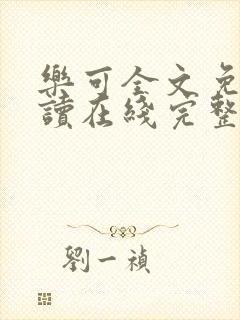 樂可全文免
讀在綫完整
劉一禎